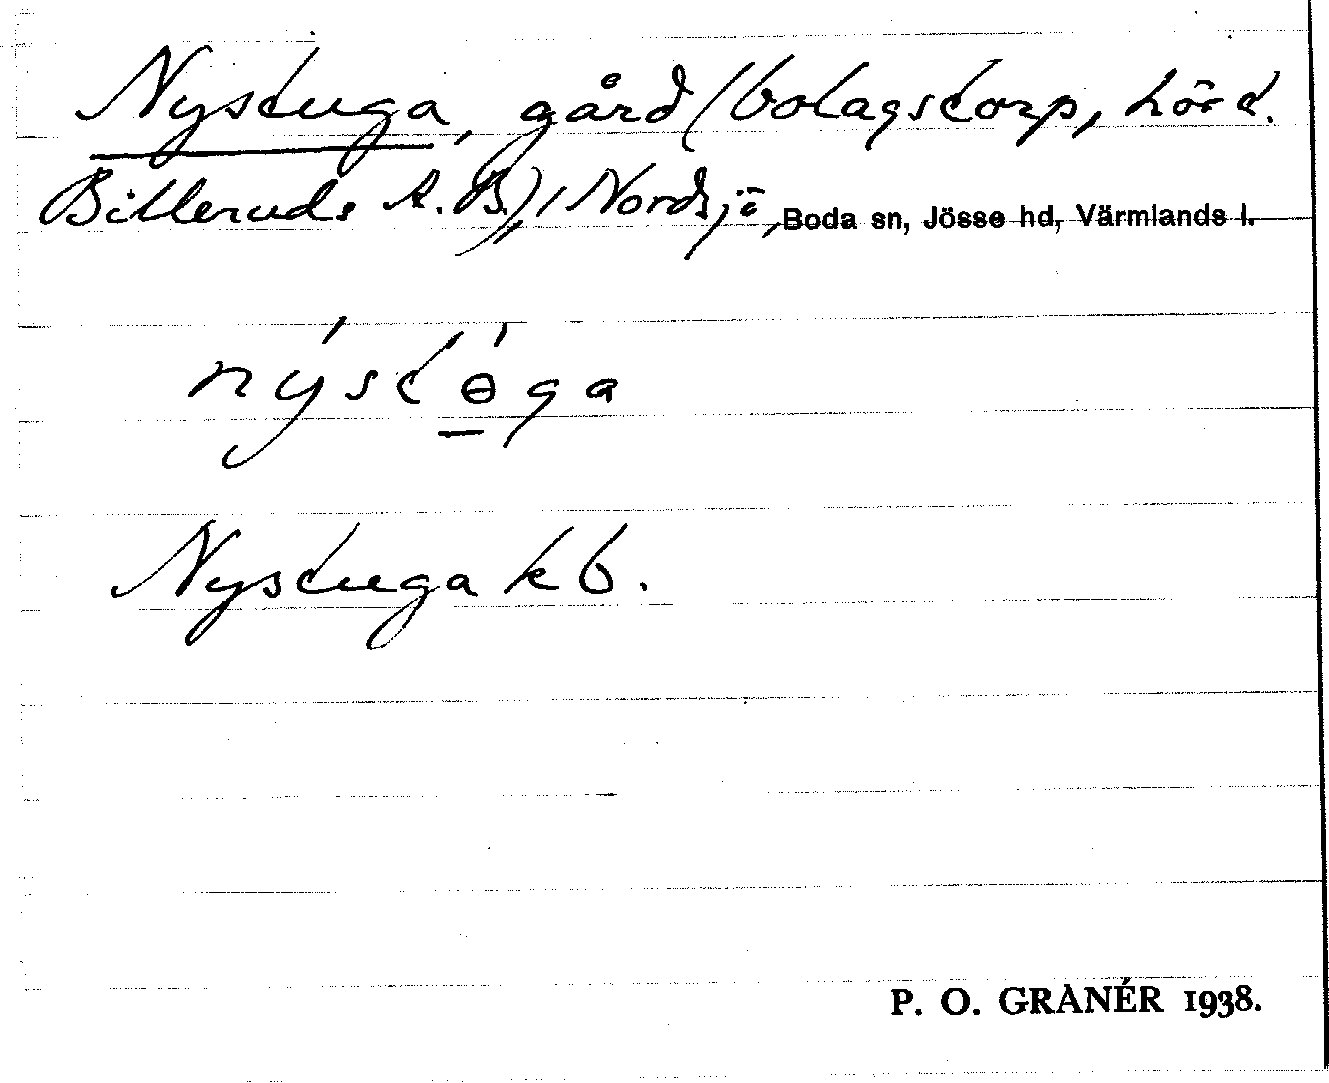 Nystuga, gård (bolagstorp, hörd.
Billeruds A.B.), i Nordsjö, Boda sn, Jösse hd, Värmlands l.
nýstɵ́ga
Nystuga kb.
P. O. GRANÉR 1938.